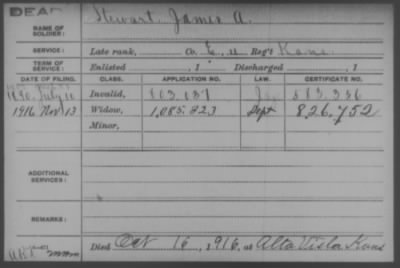 DEAD
NAME OF SOLDIER: Stewart, James A.
SERVICE: Late rank, Reg't Kans.
TERM OF SERVICE: Enlisted , 1 Discharged , 1
DATE OF FILING. CLASS. APPLICATION NO. LAW. CERTIFICATE NO.
1890. July 10 Invalid, 803.037 583.336
1916 Nov 13 Widow, 1,085.223 Sept 826.752
Minor,
ADDITIONAL SERVICES:
REMARKS:
Died Oct 16, 1916, at Alta Vista Kans